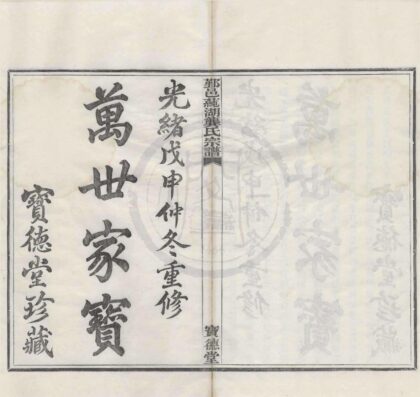 鄞邑蔉湖龔氏宗譜
寶德堂
光緒戊申仲冬重修
萬世家寶
寶德堂珍藏